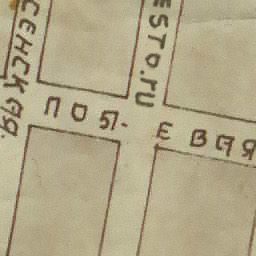 СЕНСКАЯ.
ESTO.RU
ПОЛ- ЕВАЯ